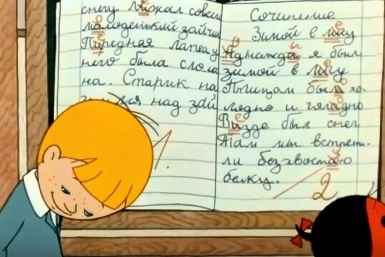 снегу лижал совсем
молоденький зайчи
Пиредная лапка у
него была слома
на. Старик на
над зай
1.
Сочинение
Зимой в лису
Аднажды я был
зимой в лису
Птицам было хо-
ладно и
Визде был снег
Там мы встрети-
ли безхвостою
белку.
2